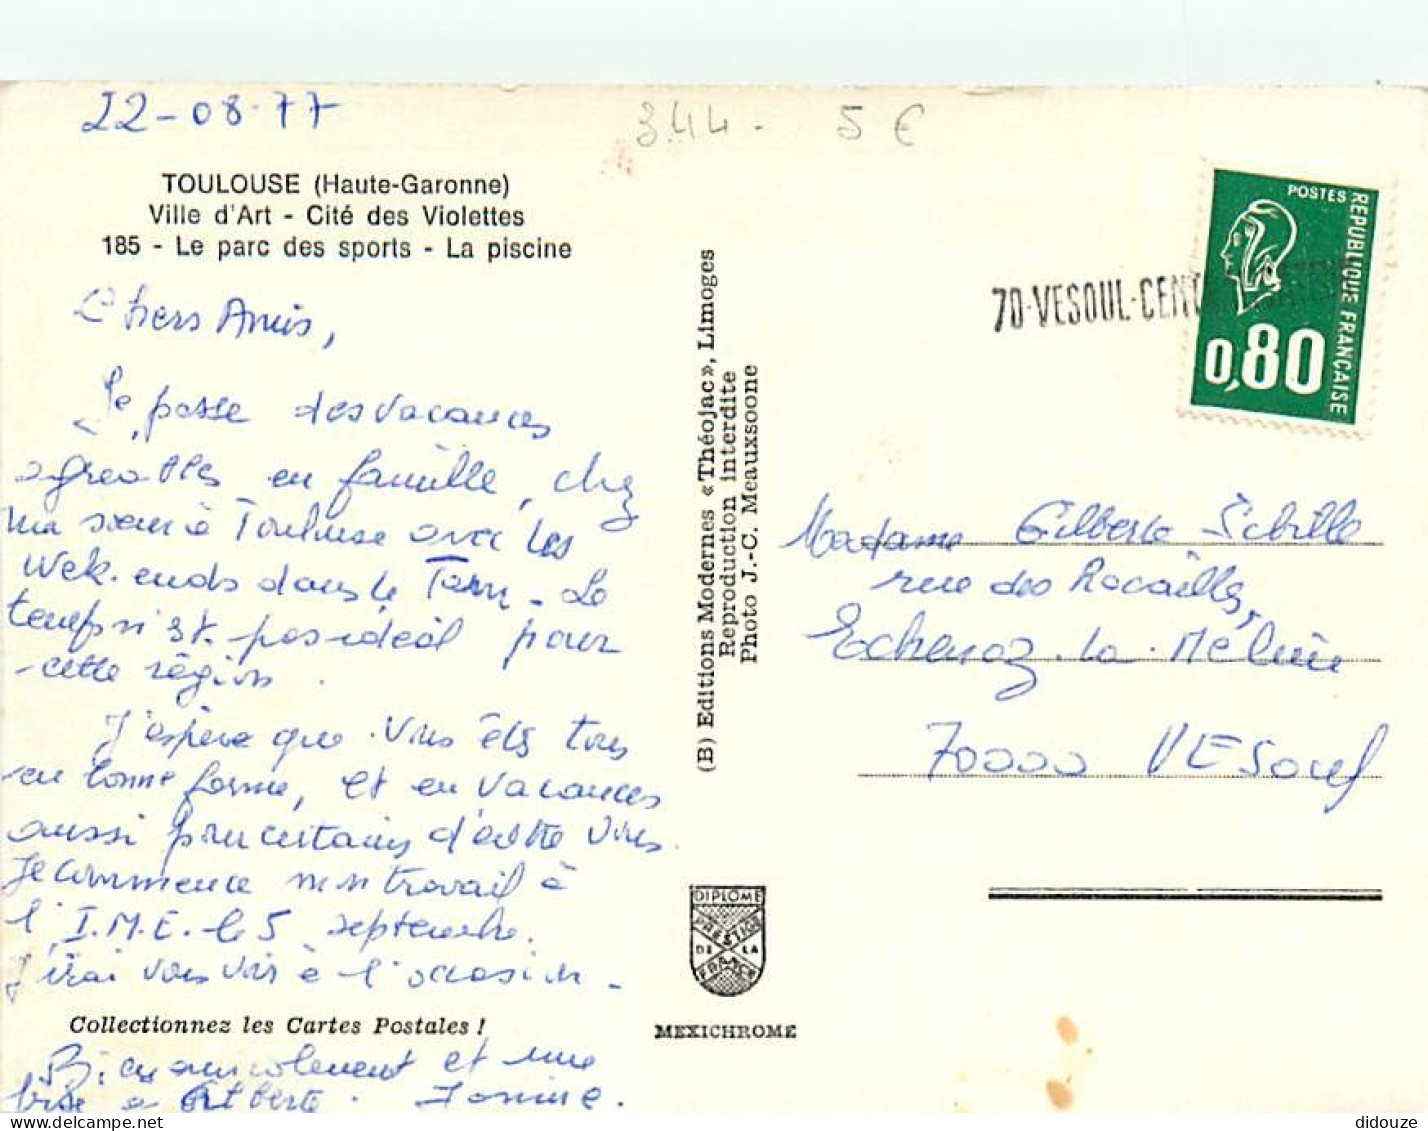 22-08-77
344 - 5 €
TOULOUSE (Haute-Garonne)
Ville d'Art - Cité des Violettes
185 - Le parc des sports - La piscine
Chers Amis,
Je passe des vacances
agréables en famille, chez
ma sœur à Toulouse avec les
week-ends dans le Tarn - Le
temps n'est pas idéal pour
cette région.
J'espère que vous êtes tous
en bonne forme, et en vacances
aussi pour certains d'entre vous.
Je commence mon travail à
l'I.M.E. le 5 septembre.
J'irai vous voir à l'occasion -
Collectionnez les Cartes Postales !
Bien amicalement et une
bise à Gilberte. Janine.
(B) Editions Modernes «Théojac», Limoges
Reproduction interdite
Photo J.-C. Meauxsoone
DIPLOME
PRESTIGE
DE LA
FRANCE
MEXICHROME
POSTES
REPUBLIQUE FRANÇAISE
0,80
70-VESOUL-CENT
Madame Gilberte Sibille
rue des Rocailles,
Echenoz-la-Méline
70000 VESOUL
didouze